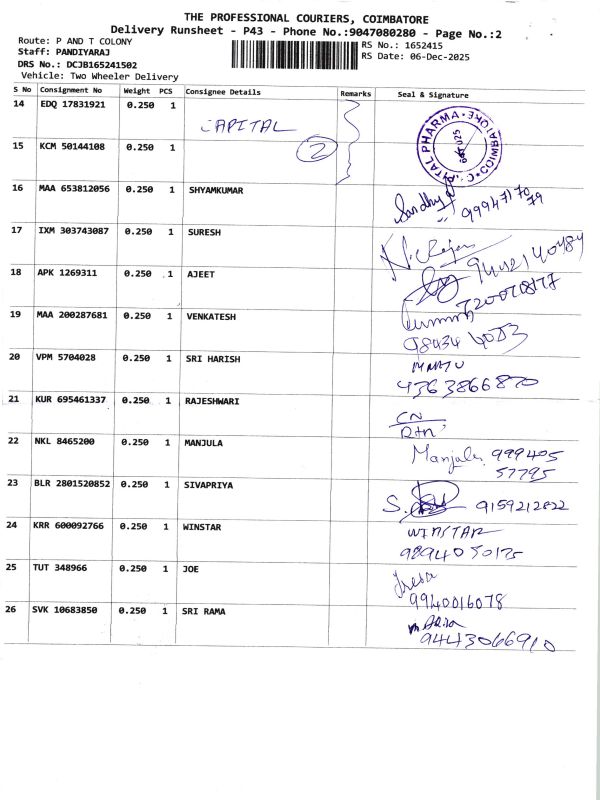 THE PROFESSIONAL COURIERS, COIMBATORE
Delivery Runsheet - P43 - Phone No.:9047080280 - Page No.:2
Route: P AND T COLONY
Staff: PANDIYARAJ
DRS No.: DCJB165241502
Vehicle: Two Wheeler Delivery
RS No.: 1652415
RS Date: 06-Dec-2025
S No Consignment No Weight PCS Consignee Details Remarks Seal & Signature
14 EDQ 17831921 0.250 1 CAPITAL
2
15 KCM 50144108 0.250 1
16 MAA 653812056 0.250 1 SHYAMKUMAR Sandhya
17 IXM 303743087 0.250 1 SURESH
18 APK 1269311 0.250 1 AJEET
19 MAA 200287681 0.250 1 VENKATESH
98434 4083
20 VPM 5704028 0.250 1 SRI HARISH
4363866870
21 KUR 695461337 0.250 1 RAJESHWARI CN
Rtn
22 NKL 8465200 0.250 1 MANJULA Manjula 999405
57795
23 BLR 2801520852 0.250 1 SIVAPRIYA S. 9159212822
24 KRR 600092766 0.250 1 WINSTAR WINSTAR
9894050175
25 TUT 348966 0.250 1 JOE
9940016078
26 SVK 10683850 0.250 1 SRI RAMA
9443066910